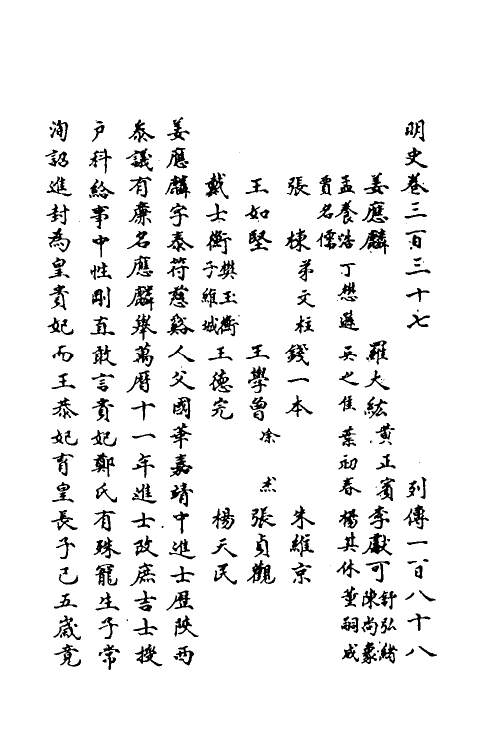 明史卷三百三十七 列傳一百八十八
姜應麟 羅大紘 黃正賓 李獻可 舒弘緒 陳尚象
孟養浩 丁懋遜 吳之佳 葉初春 楊其休 董嗣成
賈名儒
張棟 弟文柱 錢一本 朱維京
王如堅 王學曾 涂杰 張貞觀
戴士衡 樊玉衡 子維城 王德完 楊天民
姜應麟字泰符慈谿人父國華嘉靖中進士歷陝西
叅議有廉名應麟舉萬曆十一年進士改庶吉士授
户科給事中性剛直敢言貴妃鄭氏有殊寵生子常
洵詔進封為皇貴妃而王恭妃育皇長子已五歲竟